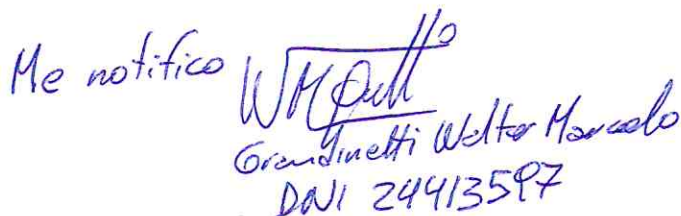 Me notifico
Grandinetti Walter Marcelo
DNI 24413597